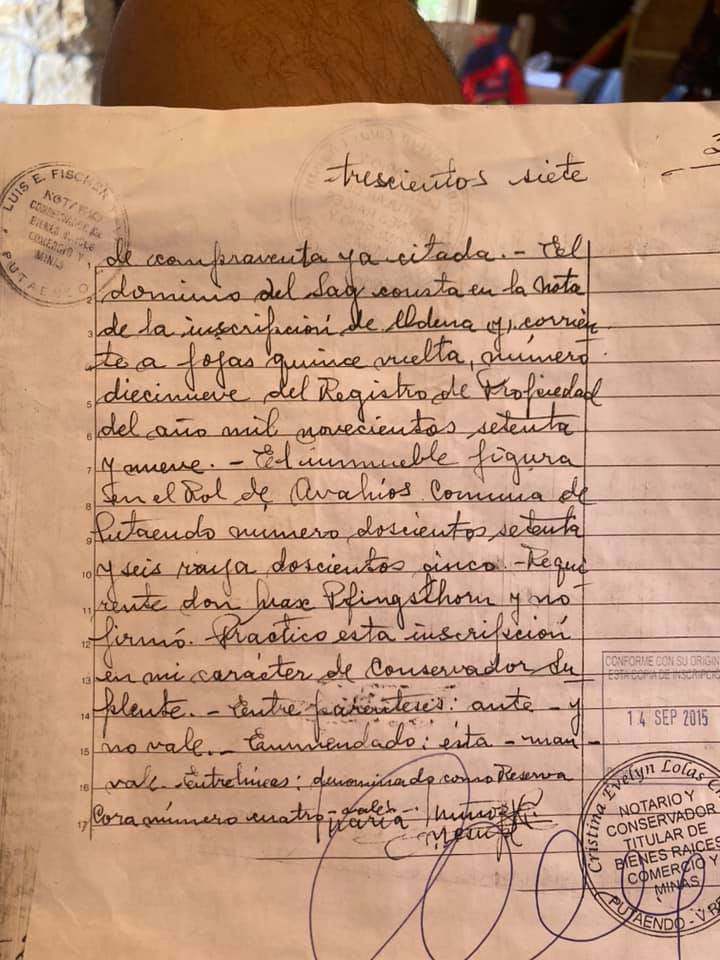 trescientos siete
LUIS E. FISCHER
NOTARIO
CONSERVADOR DE
BIENES RAICES
COMERCIO Y
MINAS
PUTAENDO
1 de compraventa ya citada.- El
2 dominio del Sag consta en la nota
3 de la inscripción de Ildena y), corrien-
4 te a fojas quince vuelta, número
5 diecinueve del Registro de Propiedad
6 del año mil novecientos setenta
7 y nueve.- El inmueble figura
8 en el Rol de Avalúos Comuna de
9 Putaendo número doscientos setenta
10 y seis raya doscientos cinco.- Reque
11 rente don Max Pfingsthorn y no
12 firmó. Practico esta inscripción
13 en mi carácter de Conservador Su
14 plente.- Entre paréntesis: ante - y
15 no vale.- Enmendado: esta - man -
16 vale. Entrelíneas: denominado como Reserva
17 Cora número cuatro - vale.-
CONFORME CON SU ORIGIN
ESTA COPIA DE INSCRIPCIO
14 SEP 2015
Cristina Evelyn Lolas Ch
NOTARIO Y
CONSERVADOR
TITULAR DE
BIENES RAICES
COMERCIO Y
MINAS
PUTAENDO - V RE